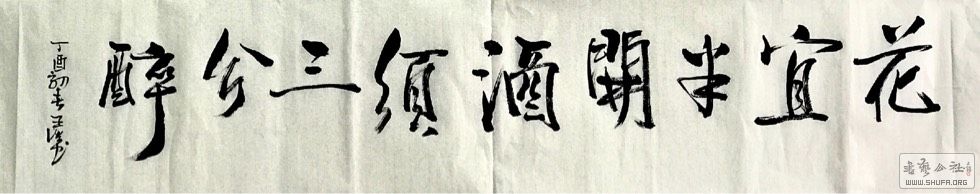 花宜半開酒須三分醉
丁酉初春王
书艺公社
WWW.SHUFA.ORG